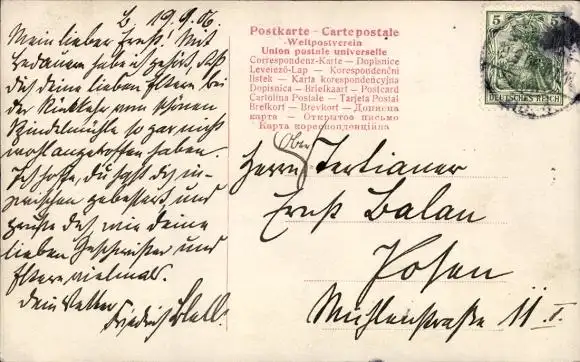 B. 19.9.06.
Mein lieber Ernst! Mit
Bedauern habe ich gehört, daß
dich deine lieben Eltern bei
der Rückkehr vom schönen
Spindelmühle so gar nicht
wohl angetroffen haben.
Ich hoffe, du hast dich in-
zwischen gebessert und
grüße dich wie deine
lieben Geschwister und
Eltern vielmals.
Dein Vetter
Friedrich
Postkarte - Carte postale
Weltpostverein
Union postale universelle
Correspondenz-Karte — Dopisnice
Levelező-Lap — Korespondenční
lístek — Karta korespondencyjna
Dopisnica — Briefkaart — Postcard
Cartolina Postale — Tarjeta Postal
Brefkort — Brevkort — Дописна
карта — Открытое письмо
Карта кореспонденційна
5 5
DEUTSCHES REICH
Ober
Herrn Tertianer
Ernst Balan
Posen
Mühlenstraße 11 I.